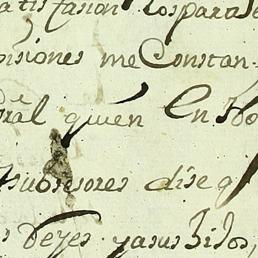 atisfasion los para
visiones me Constan
ral quien En
subsesores dise
Reyes yasus hijos,